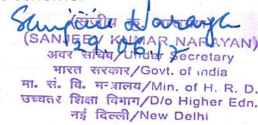 Sanjeev Narayan
29.06.12
(SANJEEV KUMAR NARAYAN)
अवर सचिव/Under Secretary
भारत सरकार/Govt. of India
मा. सं. वि. मन्त्रालय/Min. of H. R. D.
उच्चतर शिक्षा विभाग/D/o Higher Edn.
नई दिल्ली/New Delhi